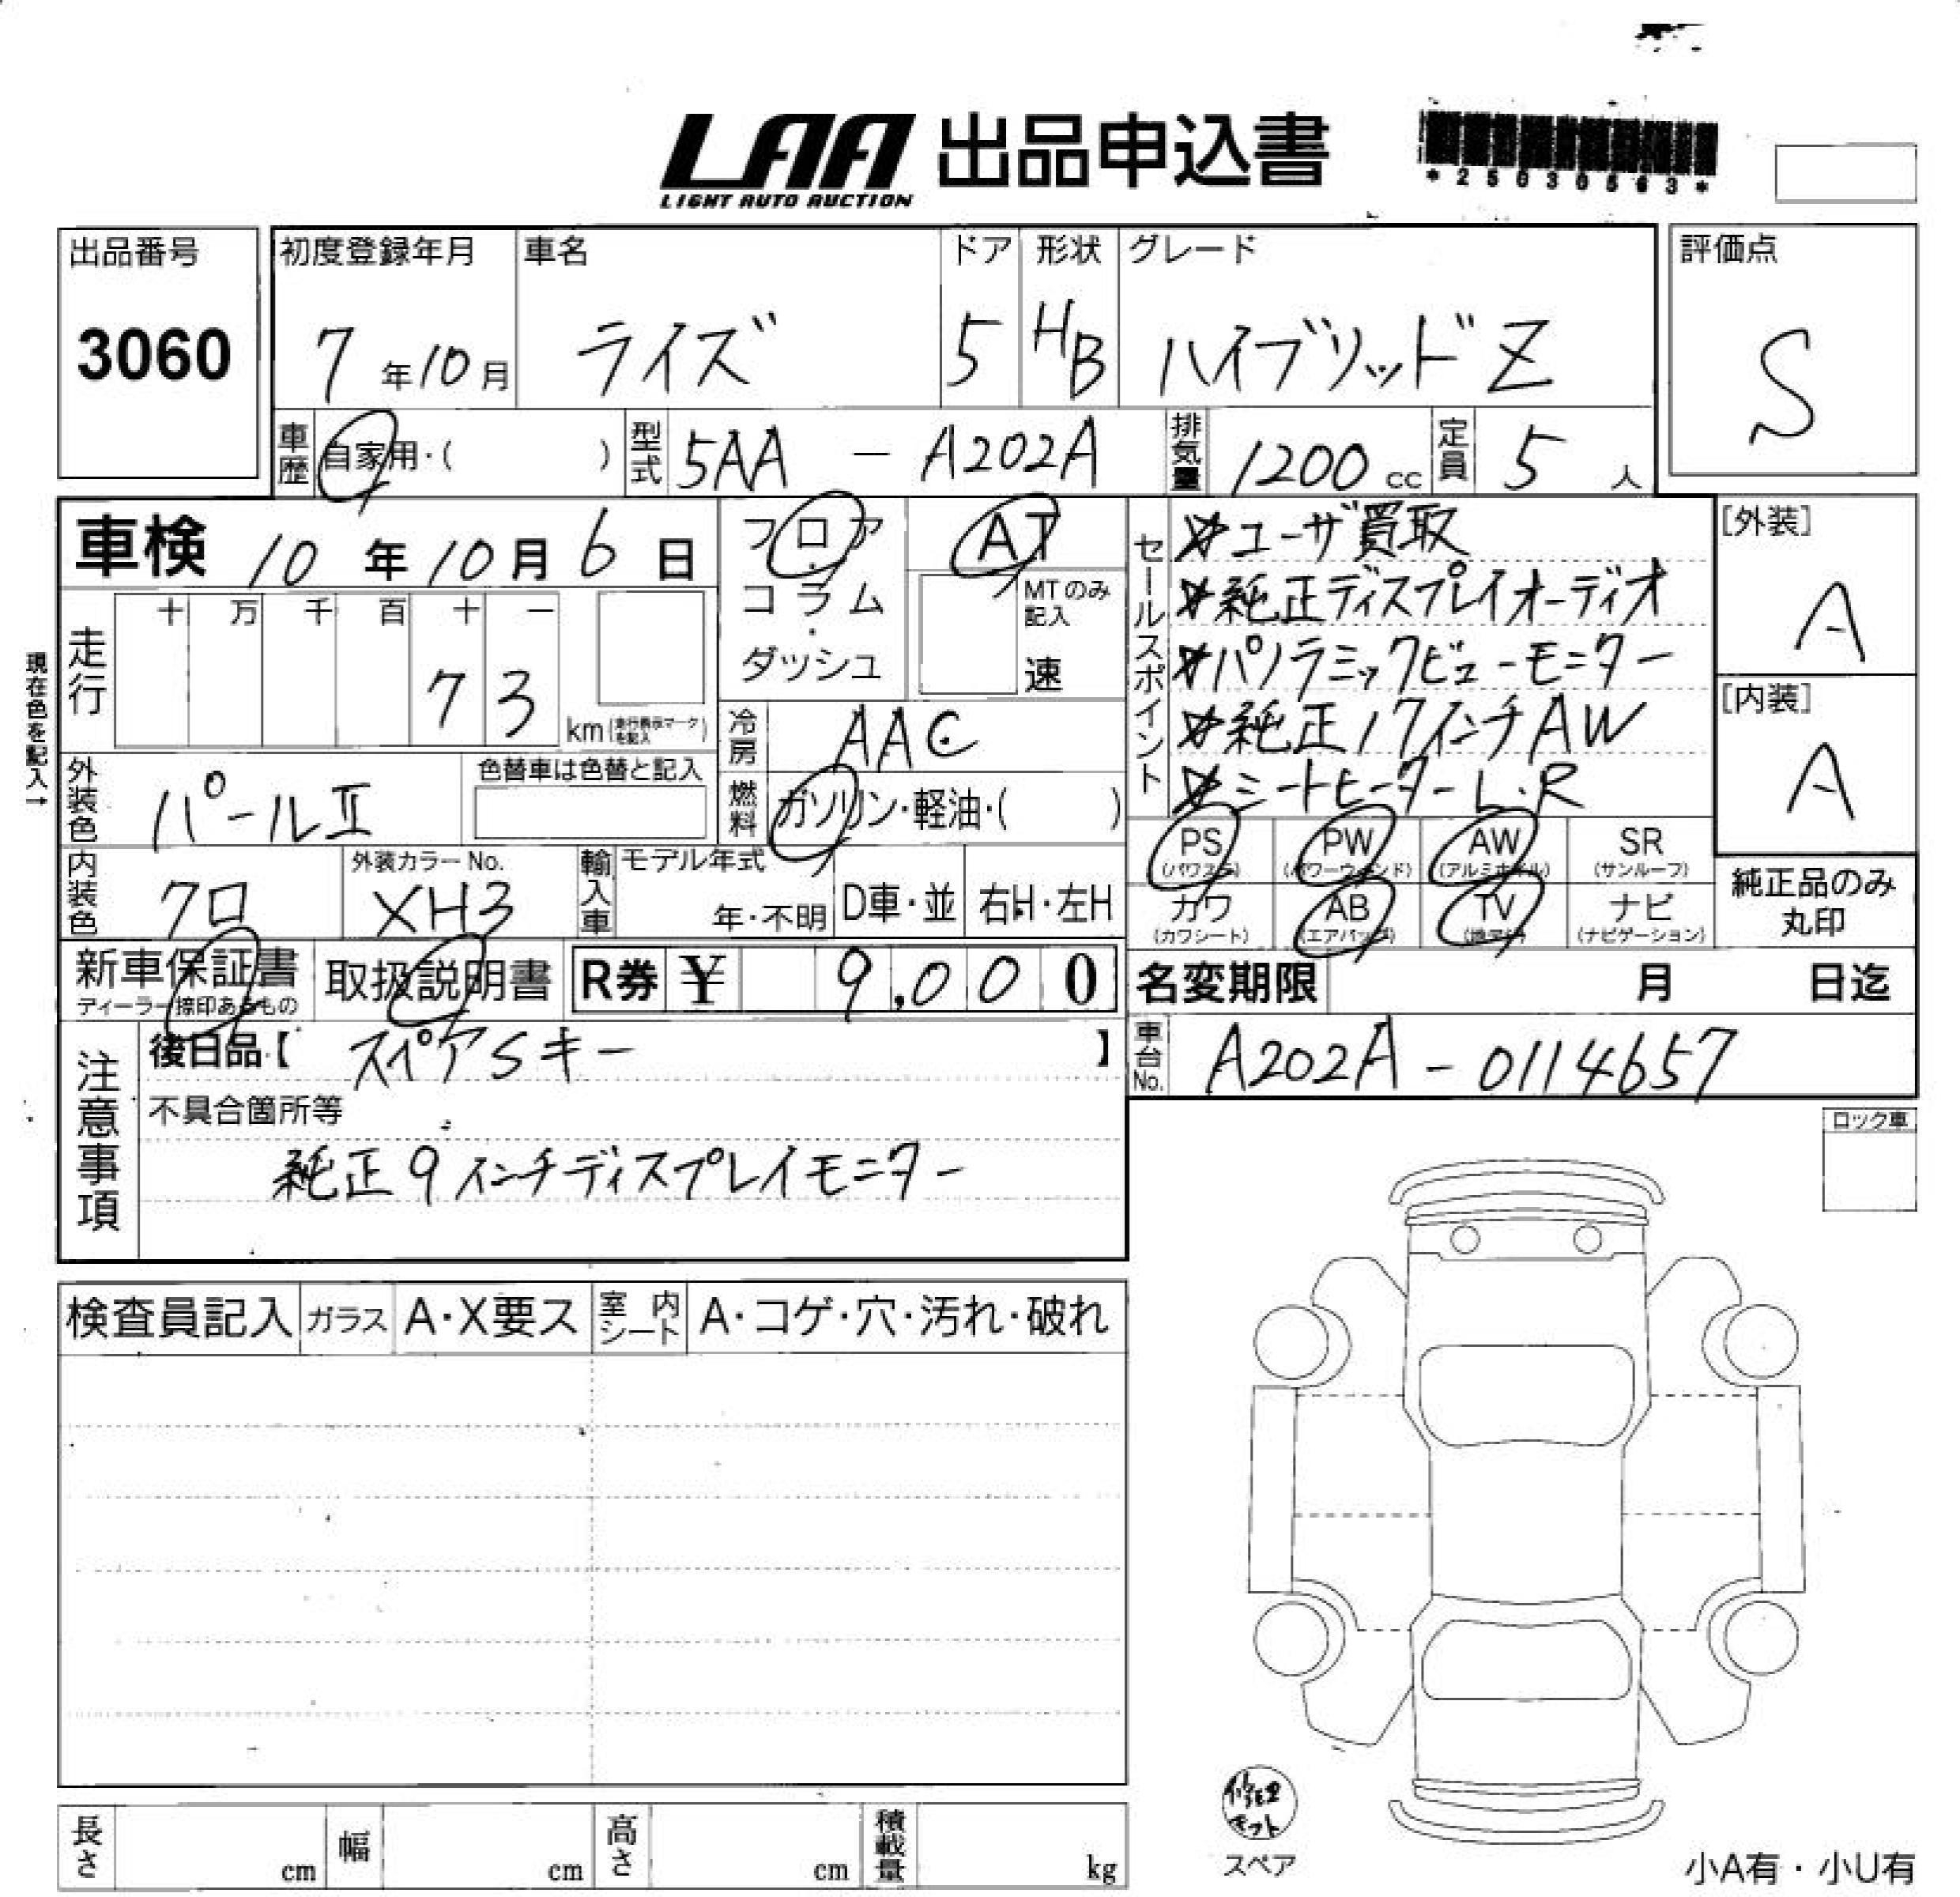 LAA 出品申込書
LIGHT AUTO AUCTION
*25030563*
出品番号
3060
初度登録年月
7年10月
車名
ライズ
ドア
5
形状
HB
グレード
ハイブリッドZ
評価点
S
車歴 自家用・( )
型式 5AA - A202A
排気量 1200cc
定員 5人
車検 10年10月6日
フロア・コラム・ダッシュ
AT
MTのみ記入
速
セールスポイント
☆ユーザ買取
☆純正ディスプレイオーディオ
☆パノラミックビューモニター
☆純正17インチAW
☆シートヒーターL.R
[外装]
A
[内装]
A
現在色を記入→
走行 十 万 千 百 十 一
7 3
km(走行表示マークを記入)
冷房 AAC
燃料 ガソリン・軽油・( )
外装色 パールII
色替車は色替と記入
内装色 クロ
外装カラーNo.
XH3
輸入車 モデル年式
年・不明 D車・並 右H・左H
PS (パワステ)
PW (パワーウィンド)
AW (アルミホイル)
SR (サンルーフ)
カワ (カワシート)
AB (エアバッグ)
TV (地デジ)
ナビ (ナビゲーション)
純正品のみ丸印
新車保証書
ディーラー捺印あるもの
取扱説明書
R券 ¥ 9,000
名変期限 月 日迄
車台No. A202A-0114657
注意事項
後日品【 スペアSキー 】
不具合箇所等
純正9インチディスプレイモニター
ロック車
検査員記入 ガラス A・X要ス 室内シート A・コゲ・穴・汚れ・破れ
修理キット
スペア
長さ cm 幅 cm 高さ cm 積載量 kg
小A有・小U有